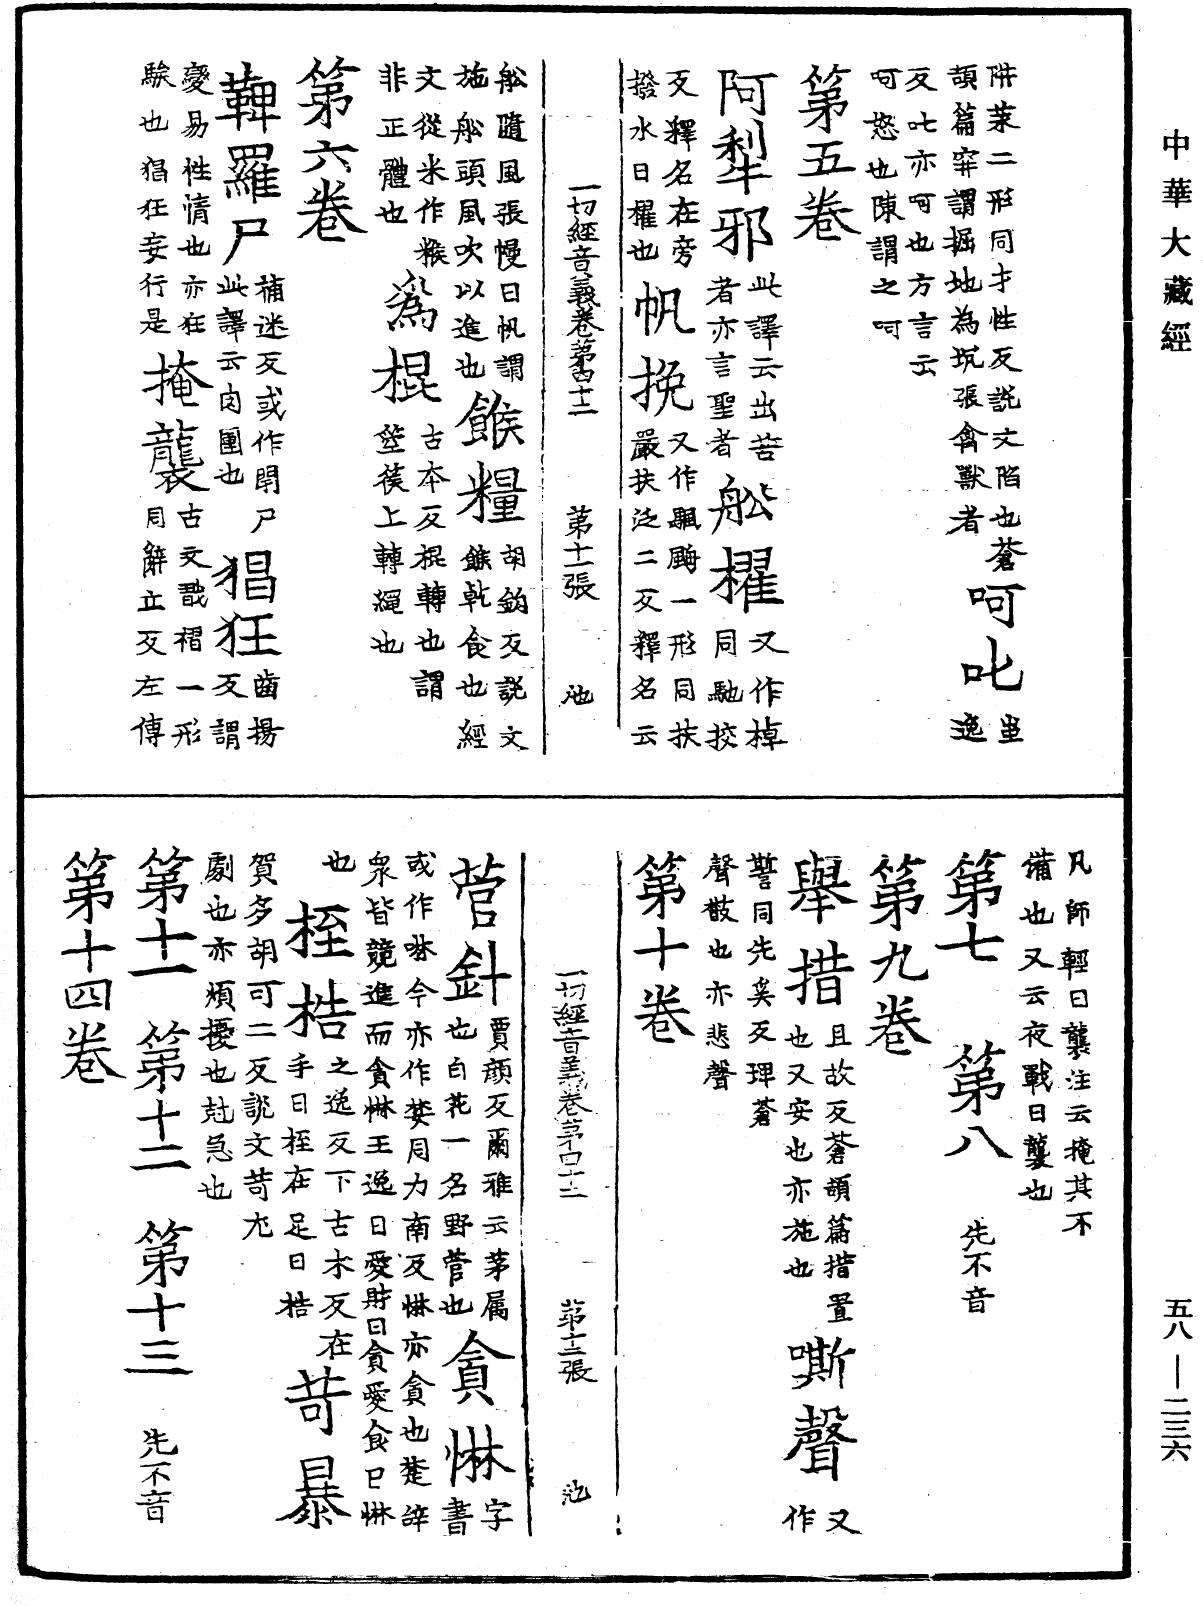 中華大藏經
阱䒽二形同才性反說文陷也蒼
頡篇穽謂掘地為坑張禽獸者
呵叱
齒逸
反叱亦呵也方言云
呵怒也陳謂之呵
第五卷
阿犁邪
此譯云出苦
者亦言聖者
舩櫂
又作棹
同馳挍
反釋名在旁
撥水曰櫂也
帆挽
又作颿䑺一形同扶
嚴扶泛二反釋名云
一切經音義卷第四十二
第十一張
池
舩隨風張幔曰帆謂
施舩頭風吹以進也
餱糧
胡鉤反說文
餱乾食也經
文從米作糇
非正體也
為棍
古本反棍轉也謂
箜篌上轉繩也
第六卷
鞞羅尸
補迷反或作閉尸
此譯云肉團也
猖狂
齒揚
反謂
變易性情也亦狂
騃也猖狂妄行是
掩襲
古文戠褶一形
同辭立反左傳
凡師輕曰襲注云掩其不
備也又云夜戰曰襲也
第七 第八
先不音
第九卷
舉措
且故反蒼頡篇措置
也又安也亦施也
嘶聲
又
作
誓同先奚反埤蒼
聲散也亦悲聲
第十卷
一切經音義卷第四十二
第十二張
池
菅針
賈顏反爾雅云茅属
也白花一名野菅也
貪惏
字
書
或作啉今亦作婪同力南反惏亦貪也楚辞
衆皆競進而貪惏王逸曰愛財曰貪愛食曰惏
也
桎梏
之逸反下古木反在
手曰桎在足曰梏
苛暴
賀多胡可二反說文苛尤
劇也亦煩擾也尅急也
第十一 第十二 第十三
先不音
第十四卷
五八—二三六